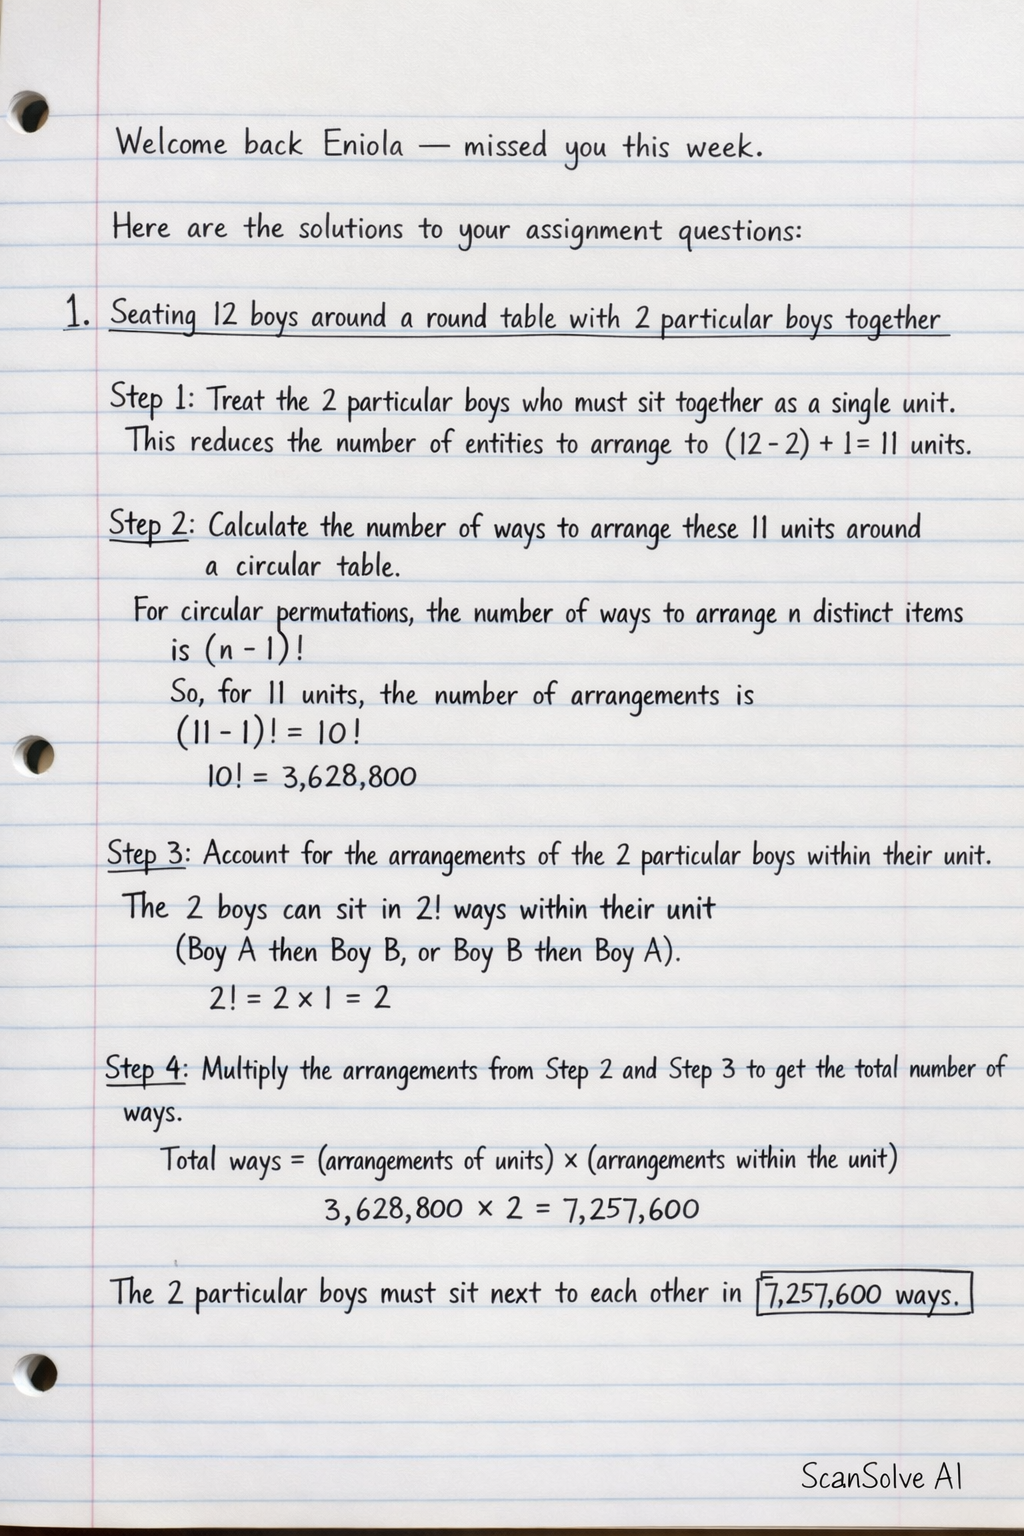 Welcome back Eniola — missed you this week.
Here are the solutions to your assignment questions:
1. Seating 12 boys around a round table with 2 particular boys together
Step 1: Treat the 2 particular boys who must sit together as a single unit.
This reduces the number of entities to arrange to (12 - 2) + 1 = 11 units.
Step 2: Calculate the number of ways to arrange these 11 units around
a circular table.
For circular permutations, the number of ways to arrange n distinct items
is (n - 1)!
So, for 11 units, the number of arrangements is
(11 - 1)! = 10!
10! = 3,628,800
Step 3: Account for the arrangements of the 2 particular boys within their unit.
The 2 boys can sit in 2! ways within their unit
(Boy A then Boy B, or Boy B then Boy A).
2! = 2 × 1 = 2
Step 4: Multiply the arrangements from Step 2 and Step 3 to get the total number of
ways.
Total ways = (arrangements of units) × (arrangements within the unit)
3,628,800 × 2 = 7,257,600
The 2 particular boys must sit next to each other in 7,257,600 ways.
ScanSolve AI